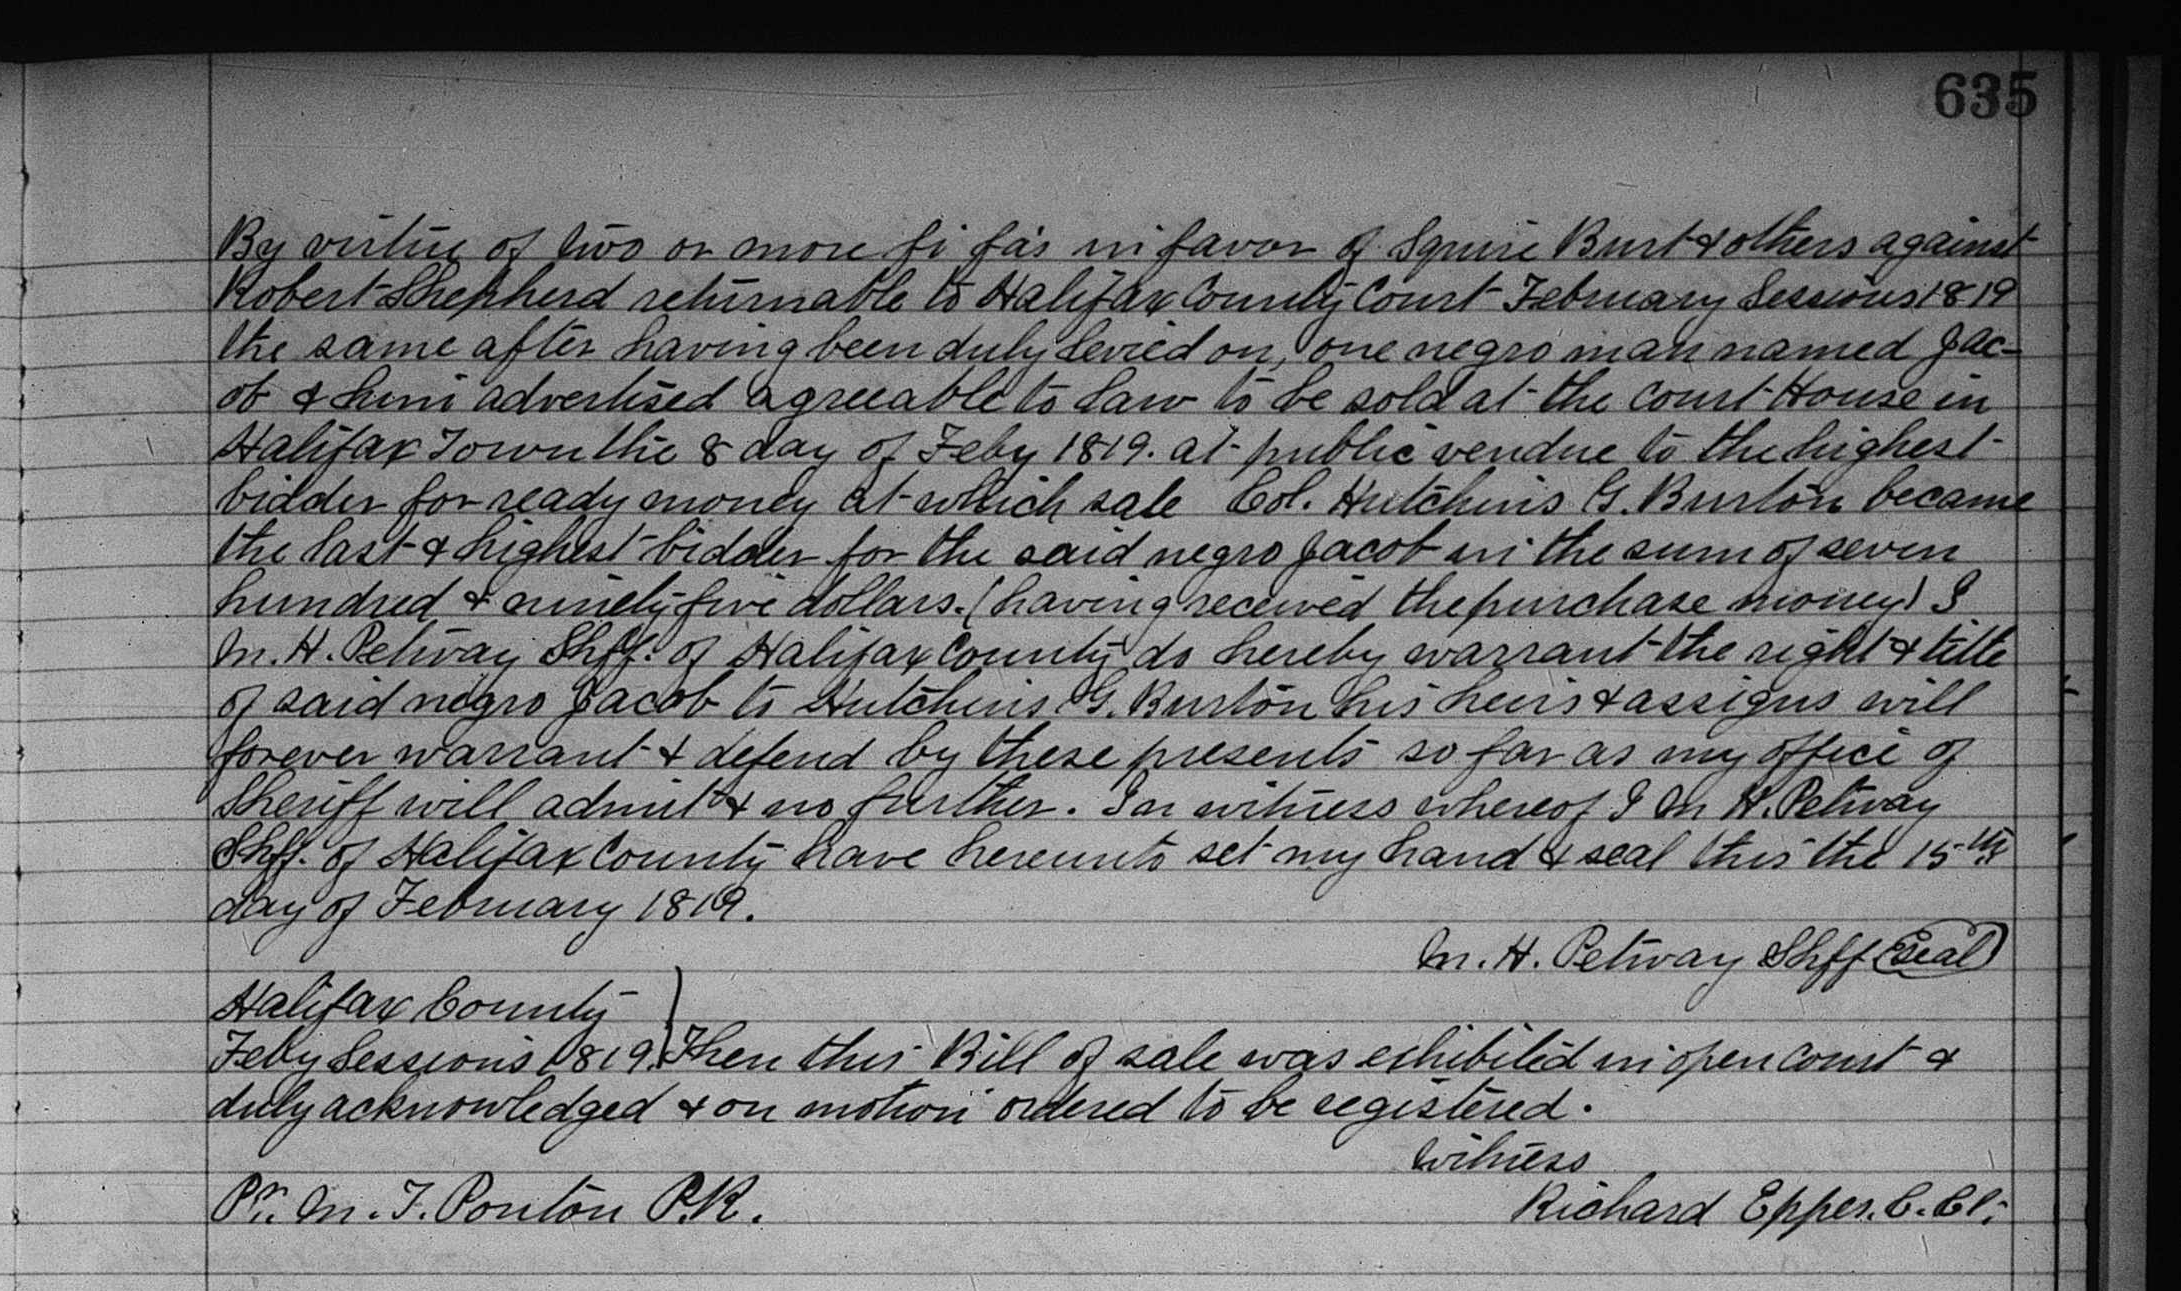 635
By virtue of two or more fi fa's in favor of Squire Burt & others against
Robert Shepherd returnable to Halifax County Court February Sessions 1819
the same after having been duly levied on, one negro man named Jac-
ob & him advertised agreeable to law to be sold at the Court House in
Halifax Town the 8 day of Feby 1819. at public vendue to the highest
bidder for ready money at which sale Col. Hutchins G. Burton became
the last & highest bidder for the said negro Jacob in the sum of seven
hundred & ninety five dollars. (having received the purchase money) I
M. H. Petway Shff. of Halifax County do hereby warrant the right & title
of said negro Jacob to Hutchins G. Burton his heirs & assigns will
forever warrant & defend by these presents so far as my office of
Sheriff will admit & no further. In witness whereof I M H. Petway
Shff. of Halifax County have hereunto set my hand & seal this the 15th
day of February 1819.
M. H. Petway Shff (Seal)
Halifax County
Feby Sessions 1819. } Then this Bill of sale was exhibited in open court &
duly acknowledged & on motion ordered to be registered.
Witness
Pr. M. F. Ponton P.R.
Richard Eppes. C. Cl.